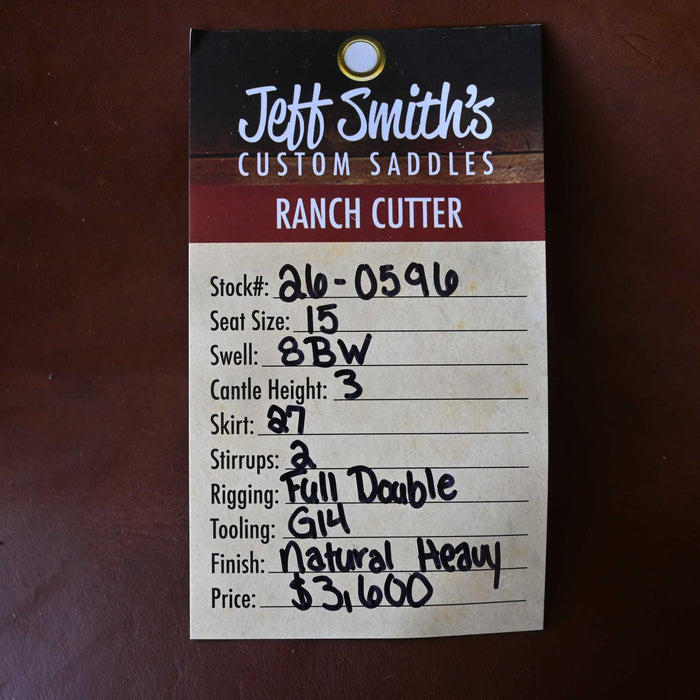 Jeff Smith's
CUSTOM SADDLES
RANCH CUTTER
Stock#: 26-0596
Seat Size: 15
Swell: 8BW
Cantle Height: 3
Skirt: 27
Stirrups: 2
Rigging: Full Double
Tooling: G14
Finish: Natural Heavy
Price: $3,600